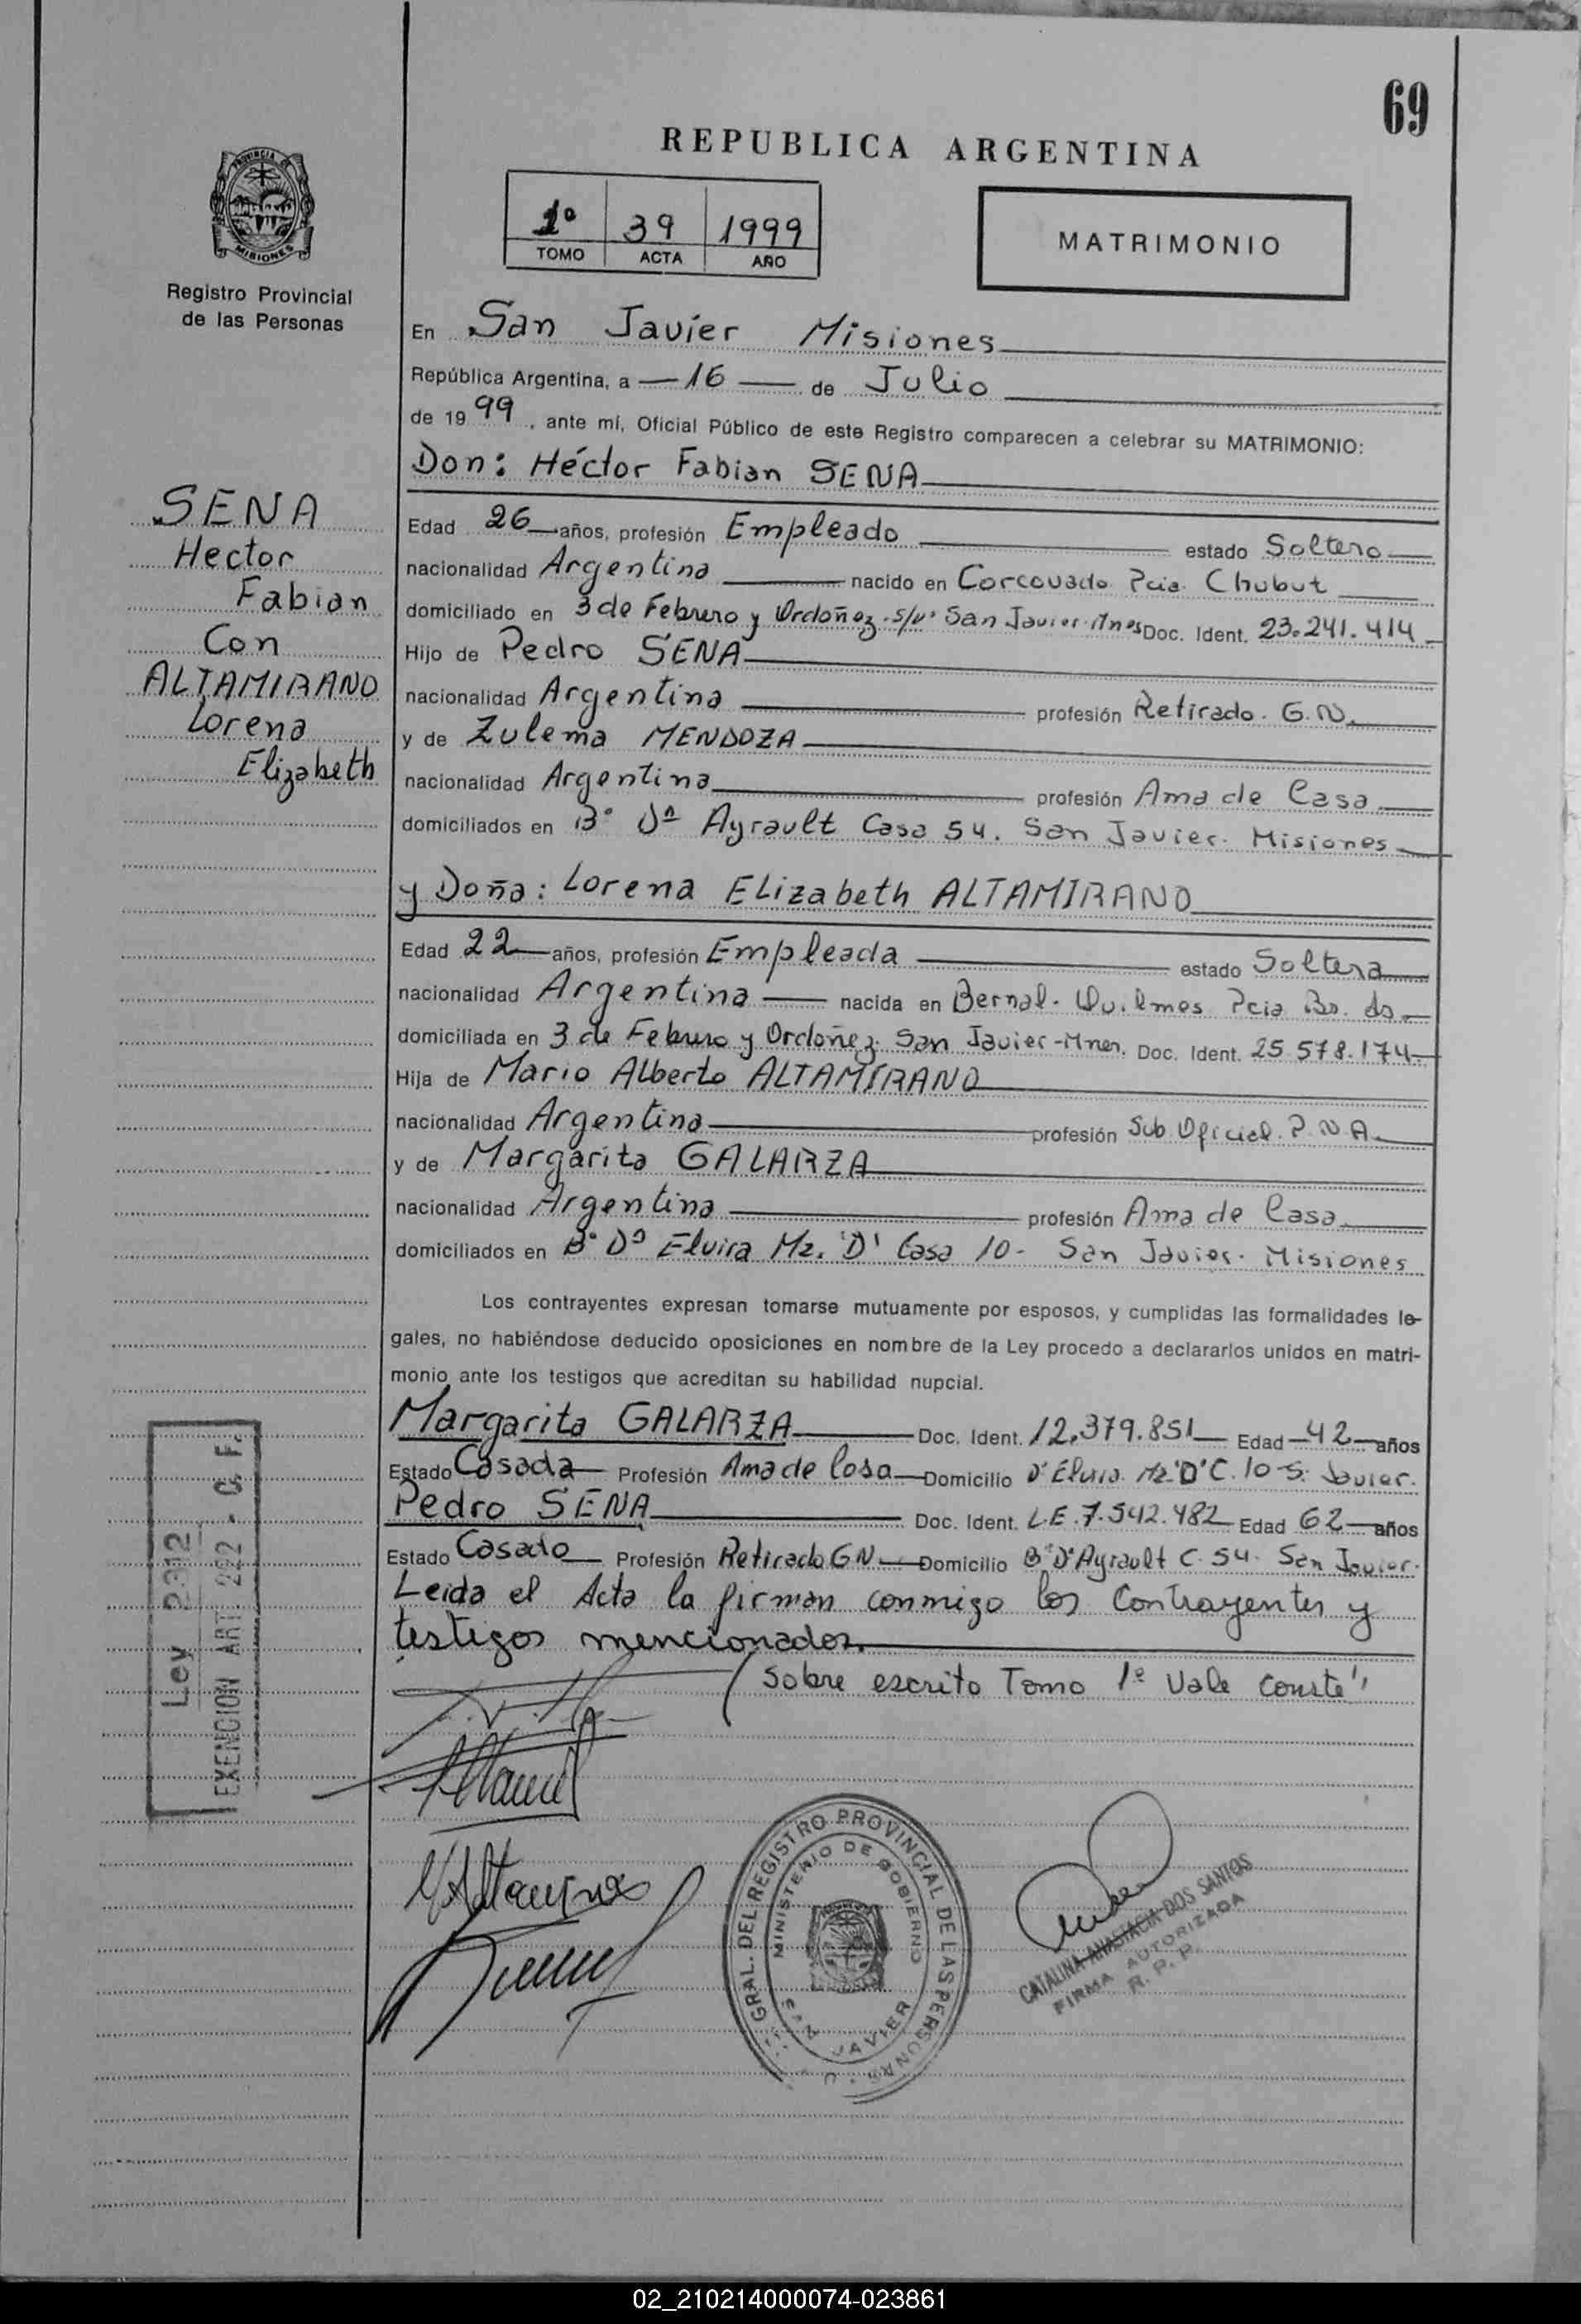 69
REPUBLICA ARGENTINA
PROVINCIA DE
MISIONES
Registro Provincial
de las Personas
1º 39 1999
TOMO ACTA AÑO
MATRIMONIO
En San Javier Misiones
República Argentina, a 16 de Julio
de 19 99, ante mí, Oficial Público de este Registro comparecen a celebrar su MATRIMONIO:
Don: Héctor Fabian SENA
SENA
Hector
Fabian
Con
ALTAMIRANO
Lorena
Elizabeth
Edad 26 años, profesión Empleado estado Soltero
nacionalidad Argentina nacido en Corcovado Pcia. Chubut
domiciliado en 3 de Febrero y Ordoñez. s/nº San Javier Mnes Doc. Ident. 23.241.414
Hijo de Pedro SENA
nacionalidad Argentina profesión Retirado. G.N.
y de Zulema MENDOZA
nacionalidad Argentina profesión Ama de Casa
domiciliados en Bº Dn Ayrault Casa 54. San Javier. Misiones
y Doña: Lorena Elizabeth ALTAMIRANO
Edad 22 años, profesión Empleada estado Soltera
nacionalidad Argentina nacida en Bernal. Quilmes Pcia Bs. As.
domiciliada en 3 de Febrero y Ordoñez. San Javier-Mnes. Doc. Ident. 25.578.174
Hija de Mario Alberto ALTAMIRANO
nacionalidad Argentina profesión Sub Oficial. P.N.A.
y de Margarita GALARZA
nacionalidad Argentina profesión Ama de Casa
domiciliados en Bº Dª Elvira Mz. 'D' Casa 10- San Javier. Misiones
Los contrayentes expresan tomarse mutuamente por esposos, y cumplidas las formalidades le-
gales, no habiéndose deducido oposiciones en nombre de la Ley procedo a declararlos unidos en matri-
monio ante los testigos que acreditan su habilidad nupcial.
Margarita GALARZA Doc. Ident. 12.379.851 Edad 42 años
Estado Casada Profesión Ama de Casa Domicilio Dª Elvira Mz.'D' C. 10-S. Javier.
Pedro SENA Doc. Ident. L.E.7.542.482 Edad 62 años
Estado Casado Profesión Retirado GN Domicilio Bº Dº Ayrault C. 54. San Javier.
Leida el Acta la firman conmigo los Contrayentes y
testigos mencionados.
(Sobre escrito Tomo 1º Vale Conste"
Ley 2312
EXENCION ART. 222 - C. F.
GRAL. DEL REGISTRO PROVINCIAL DE LAS PERSONAS
MINISTERIO DE GOBIERNO
SAN JAVIER
CATALINA ANASTACIA DOS SANTOS
FIRMA AUTORIZADA
R. P. P.
02_210214000074-023861